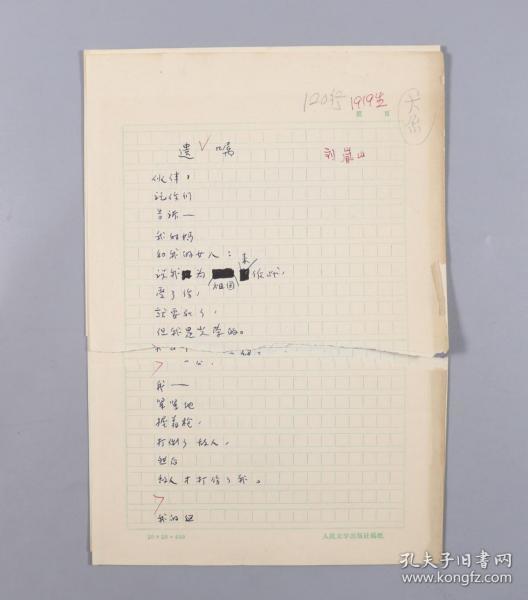 120行 1919生
页
遗嘱
刘岚山
伙伴，
请你们
告诉一
我的妈
和我的女人：
说我为
祖国
来作战，
受了伤，
就要死了，
但我是光荣的。
我一
紧紧地
握着枪，
打倒了敌人，
然后
敌人才打伤了我。
我的
20×20=400
人民文学出版社稿纸
孔夫子旧书网
www.kongfz.com